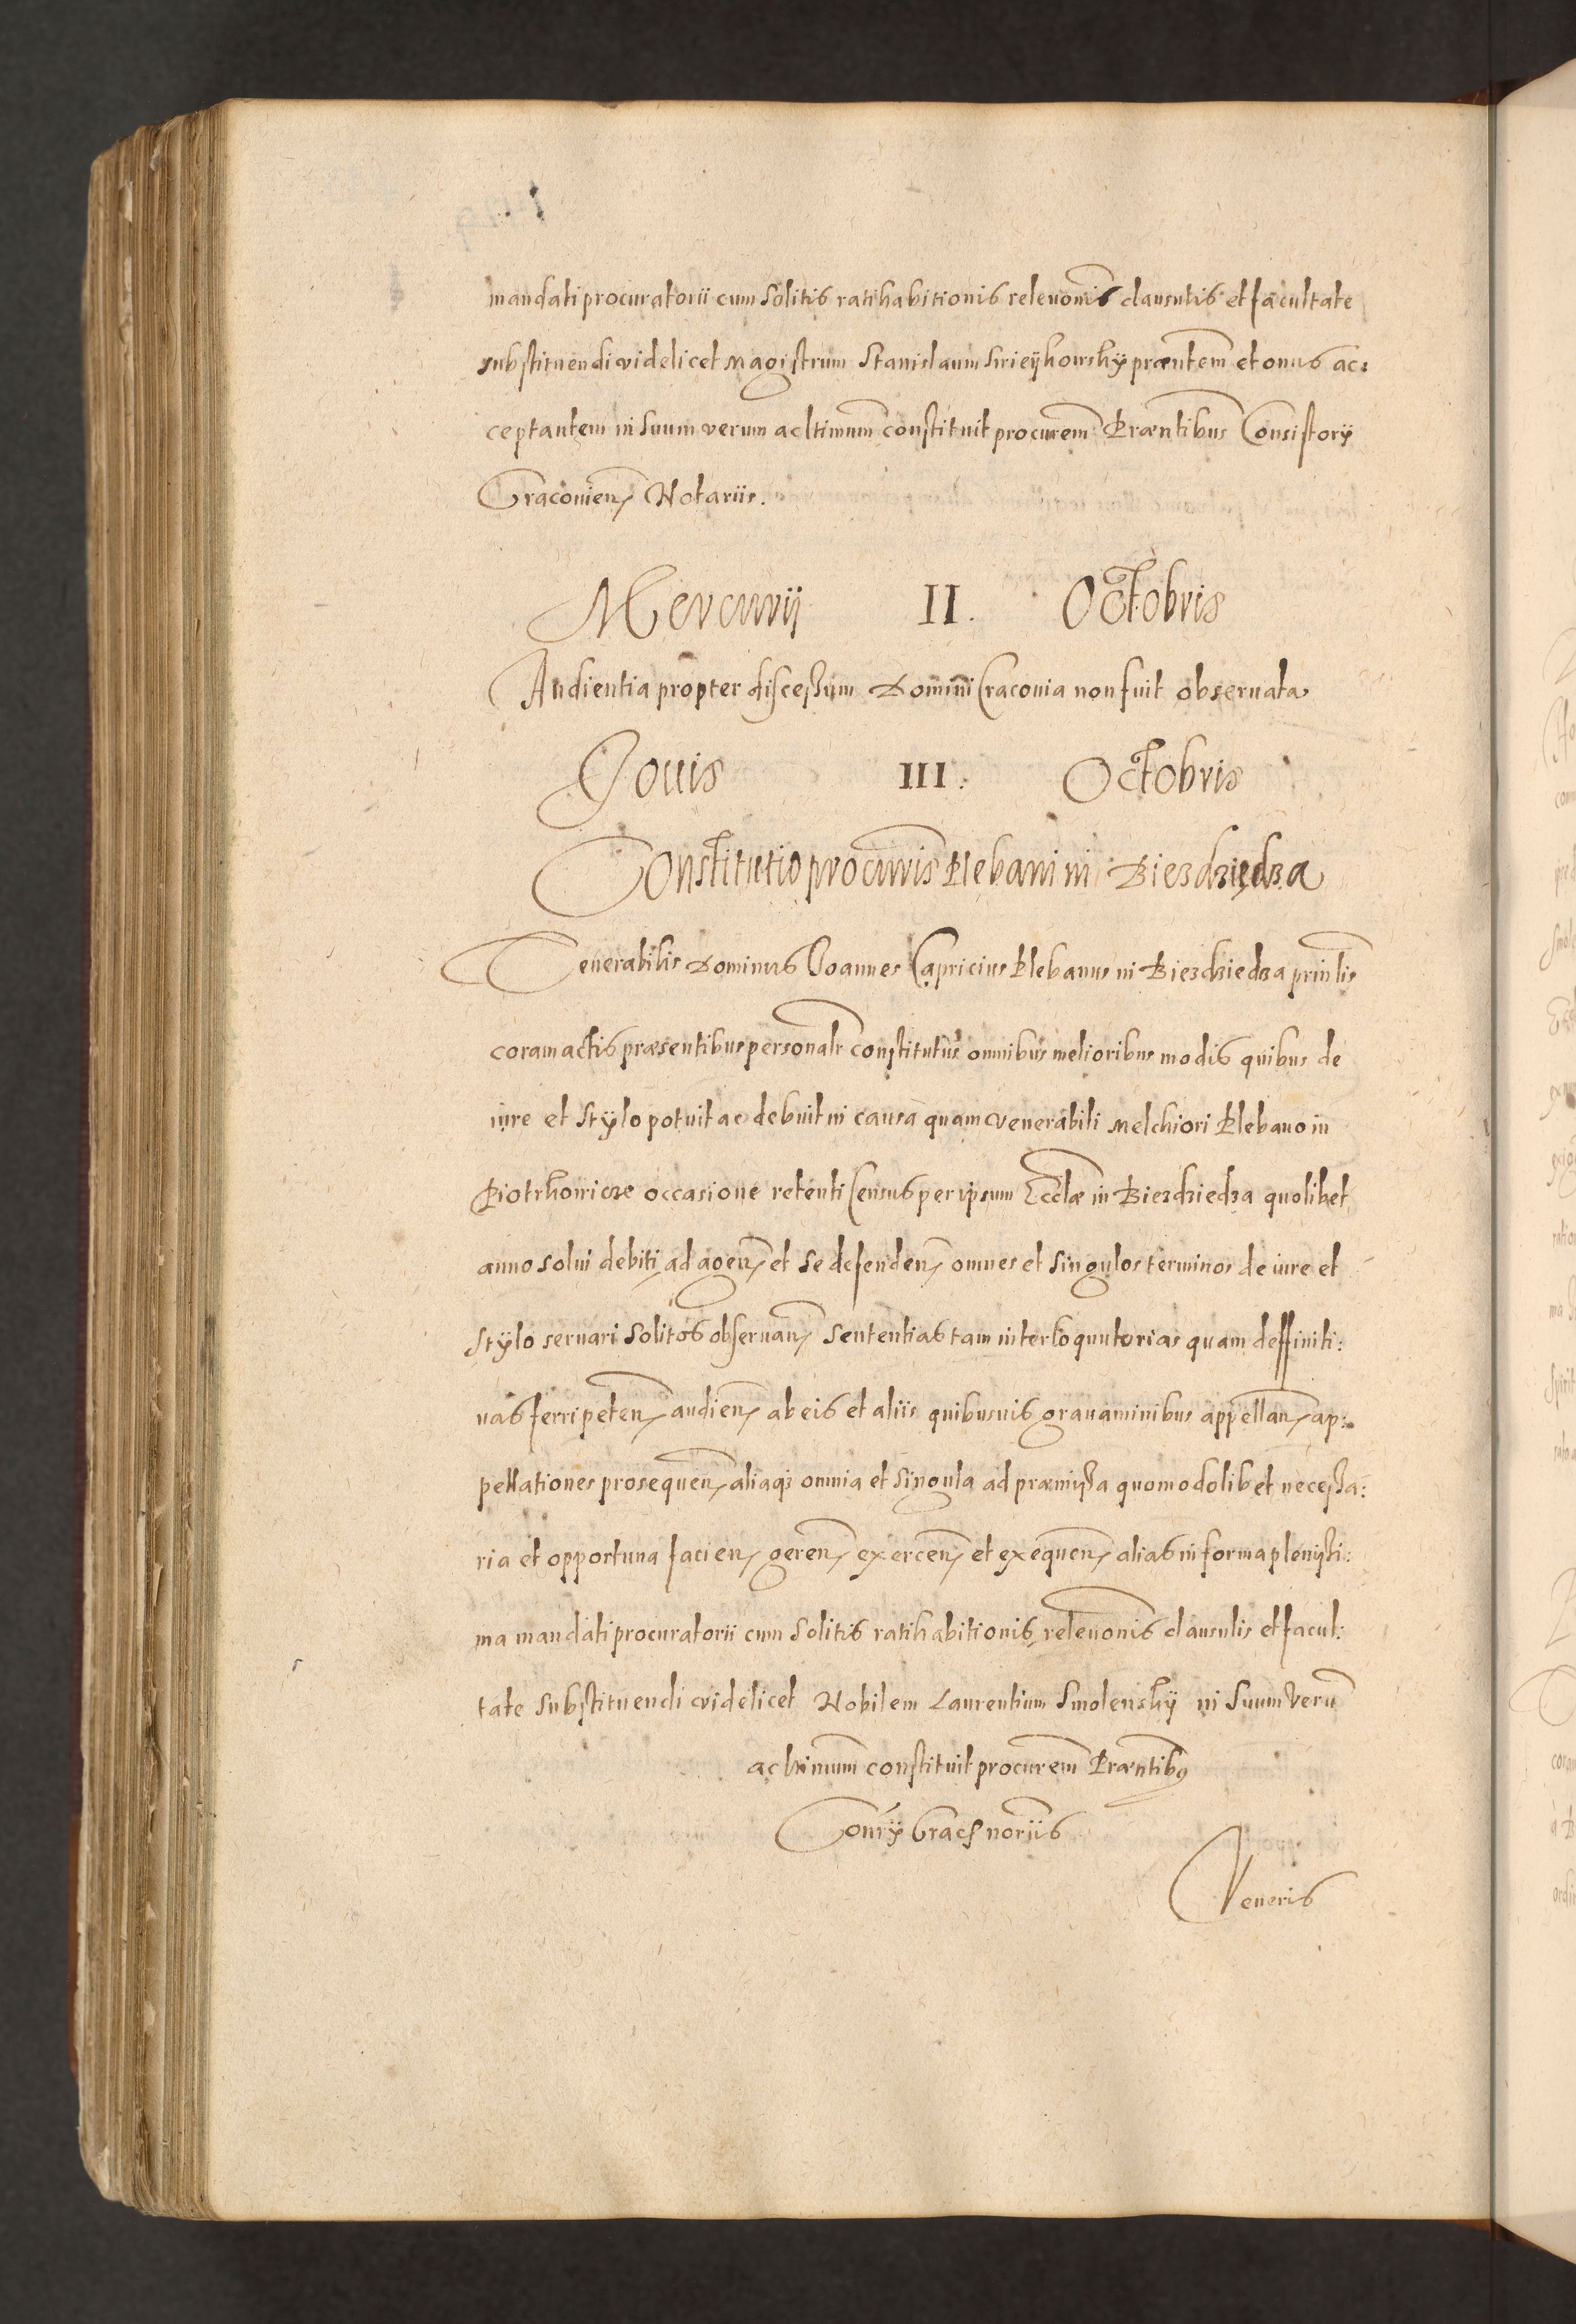 mandati procuratorii cum solitis ratihabitionis releuonis clausulis et facultate
substituendi videlicet Magistrum Stanislaum præntem et onus ac:
ceptantem in suum verum ac ltimum constituit procurem Præntibus Consistorÿ
Cracovien Notariis.
Mercurij II. Octobris
Audientia propter discessum Domini Cracovia non fuit obseruata
Jouis III. Octobris
Constitutio procuris Plebani in Biezdziedza
Venerabilis Dominus Joannes Capricius Plebanus in Biezdziedza prinlis
coram actis præsentibus personalr constitutus omnibus melioribus modis quibus de
iure et stÿlo potuit ac debuit in causa quam venerabili Melchiori Plebano in
Piotrkowicze occasione retenti Census per ipsum Eccłæ in Biezdziedza quolibet
anno solui debiti, ad agen et se defenden omnes et singulos terminos de iure et
stÿlo seruari solitos obseruan sententias tam interloquutorias quam deffiniti:
uas ferri peten audien ab eis et aliis quibusuis grauaminibus appellan ap:
pellationes prosequen aliaqз omnia et singula ad præmissa quomodolibet necessa:
ria et opportuna facien geren exercen et exequen alias in forma plenissi:
ma mandati procuratorii cum solitis ratihabitionis, releuonis clausulis et facul:
tate substituendi videlicet Nobilem Laurentium Smolenskÿ in suum veru
ac ltimum constituit procurem Præntibꝰ
Conrÿ Crac noriis
Veneris